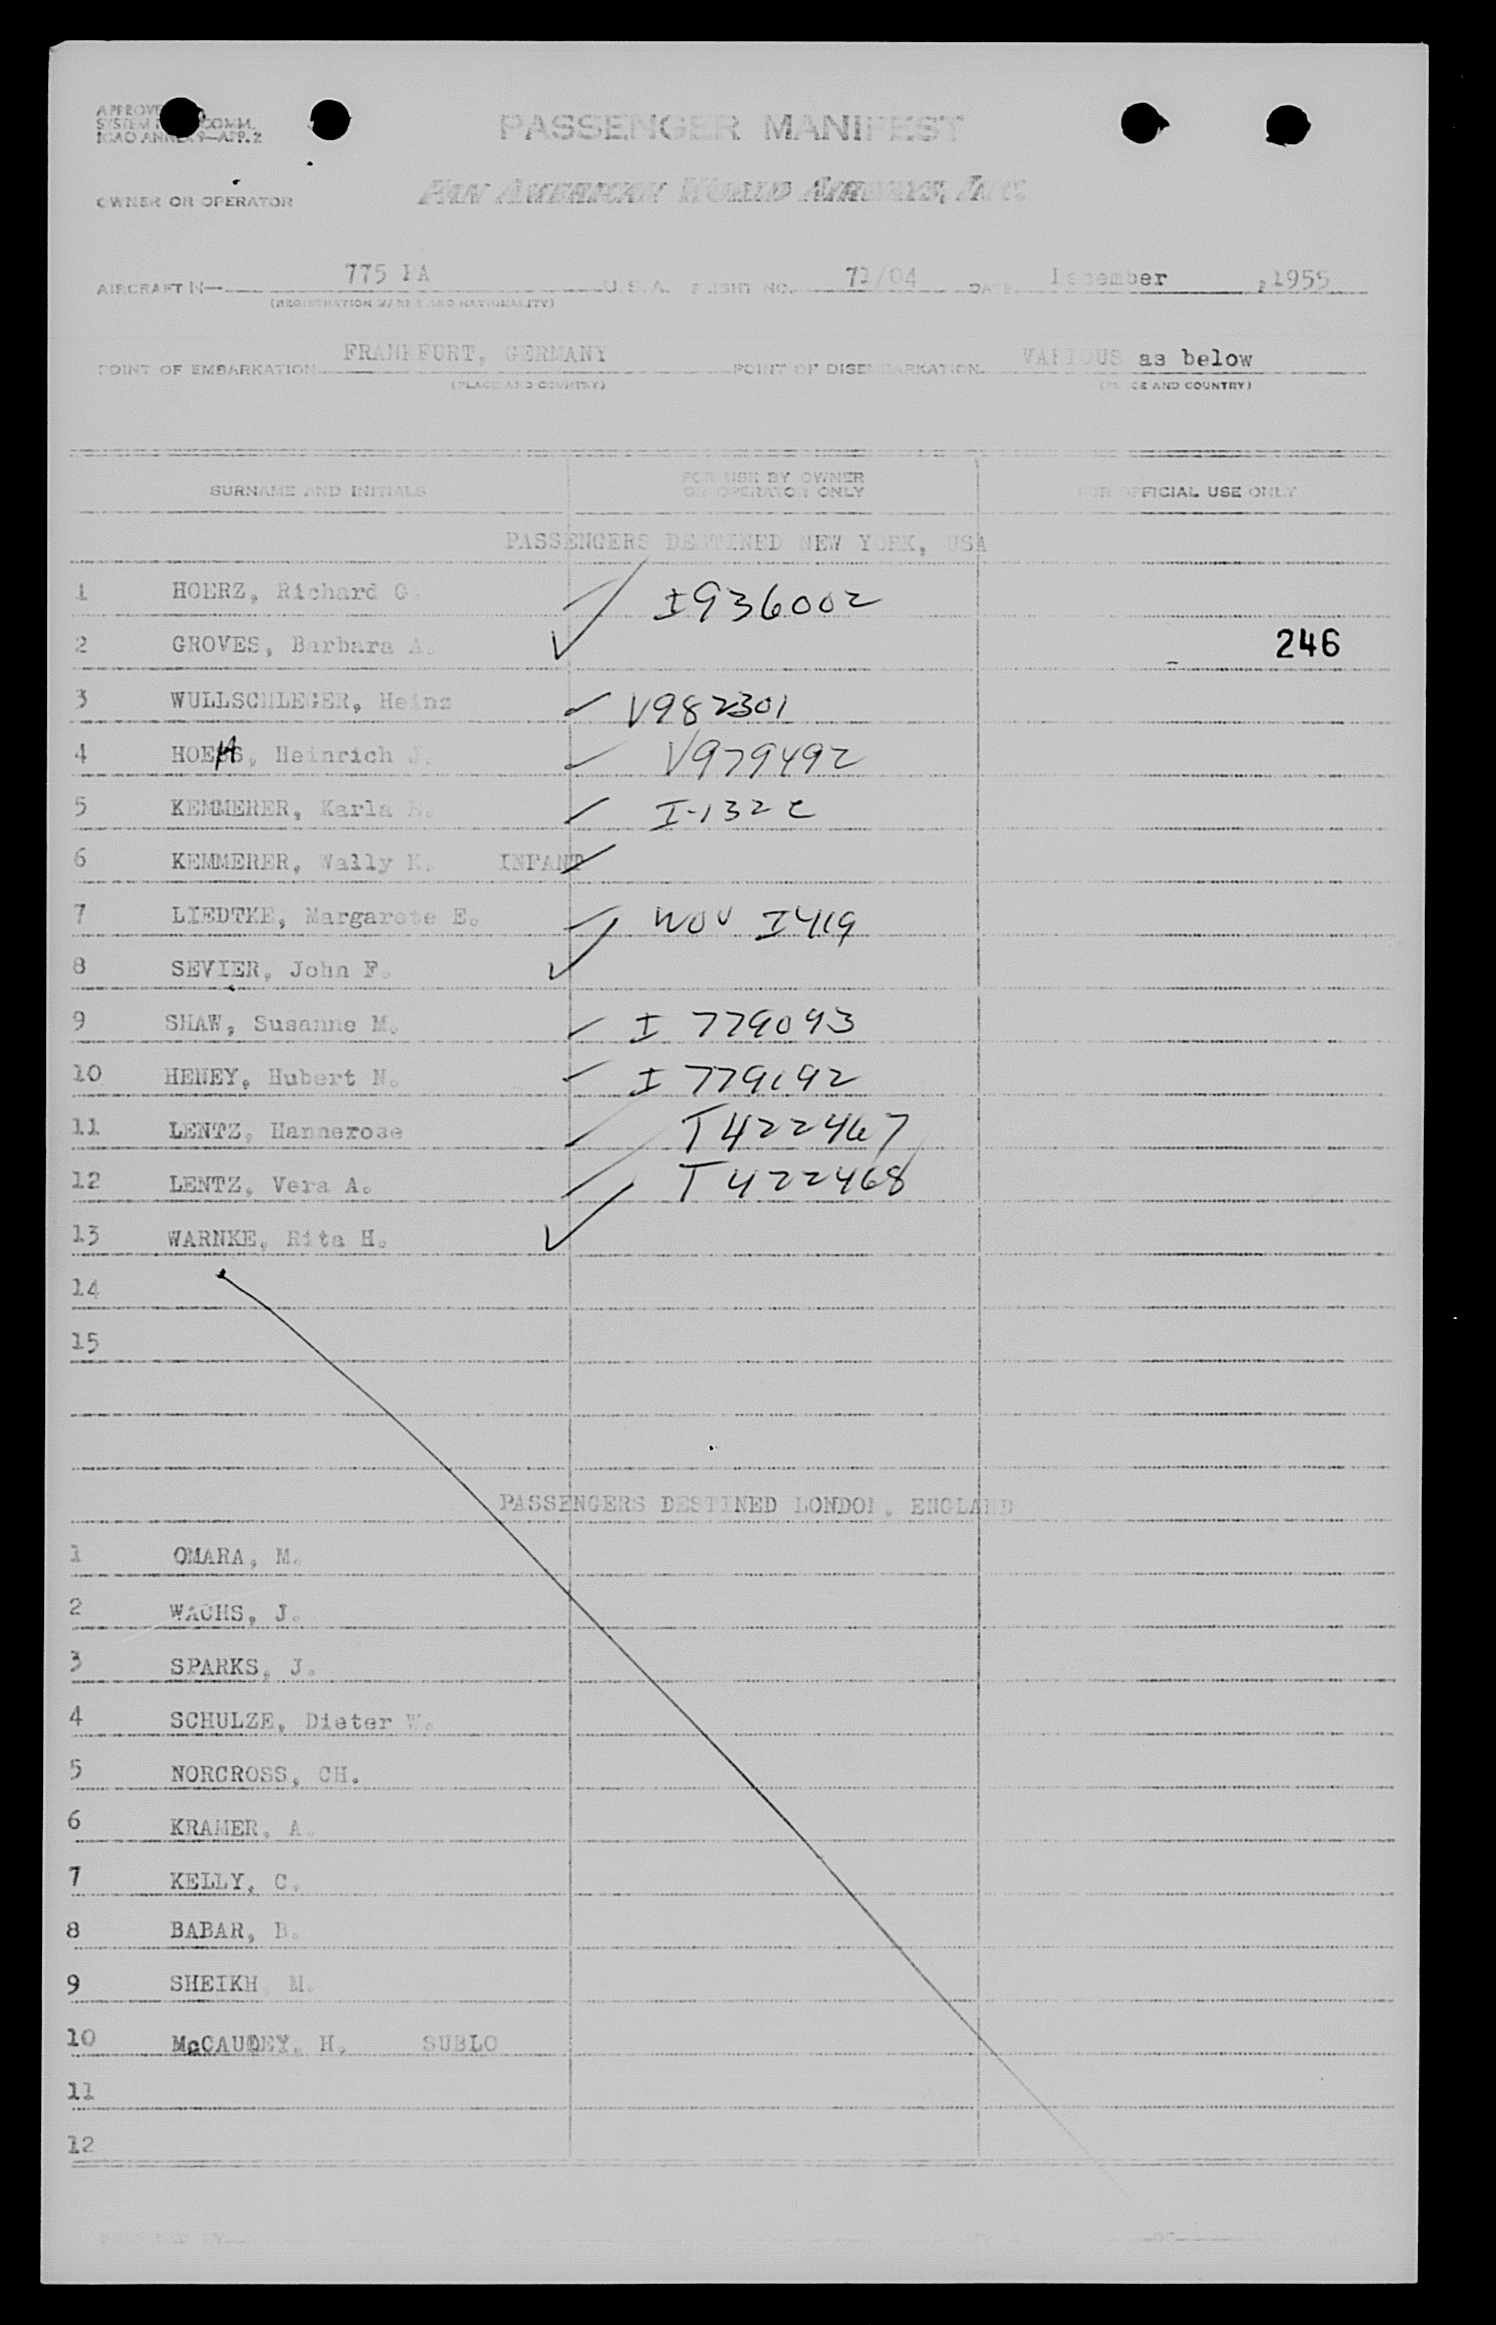 PASSENGER MANIFEST
OWNER OR OPERATOR
PAN AMERICAN WORLD AIRWAYS, INC.
AIRCRAFT N— 775 PA U.S.A. FLIGHT NO. /04 DATE December , 1955
(REGISTRATION MARKS AND NATIONALITY)
POINT OF EMBARKATION FRANKFURT, GERMANY POINT OF DISEMBARKATION VARIOUS as below
(PLACE AND COUNTRY) (PLACE AND COUNTRY)
SURNAME AND INITIALS FOR USE BY OWNER OR OPERATOR ONLY FOR OFFICIAL USE ONLY
PASSENGERS DESTINED NEW YORK, USA
1 HOERZ, Richard G. I936002
2 GROVES, Barbara A. 246
3 WULLSCHLEGER, Heinz V982301
4 Heinrich J. V979492
5 KEMMERER, Karla I-1322
6 KEMMERER, Wally K. INFANT
7 LIEDTKE, Margarete E. NOV I419
8 SEVIER, John F.
9 SHAW, Susanne M. I 779093
10 HENEY, Hubert N. I 779192
11 LENTZ, Hannerose T422467
12 LENTZ, Vera A. T422468
13 WARNKE, Rita H.
14
15
PASSENGERS DESTINED LONDON, ENGLAND
1 OMARA, M.
2 WACHS, J.
3 SPARKS, J.
4 SCHULZE, Dieter W.
5 NORCROSS, CH.
6 KRAMER, A.
7 KELLY, C.
8 BABAR, B.
9 SHEIKH, M.
10 H. SUBLO
11
12